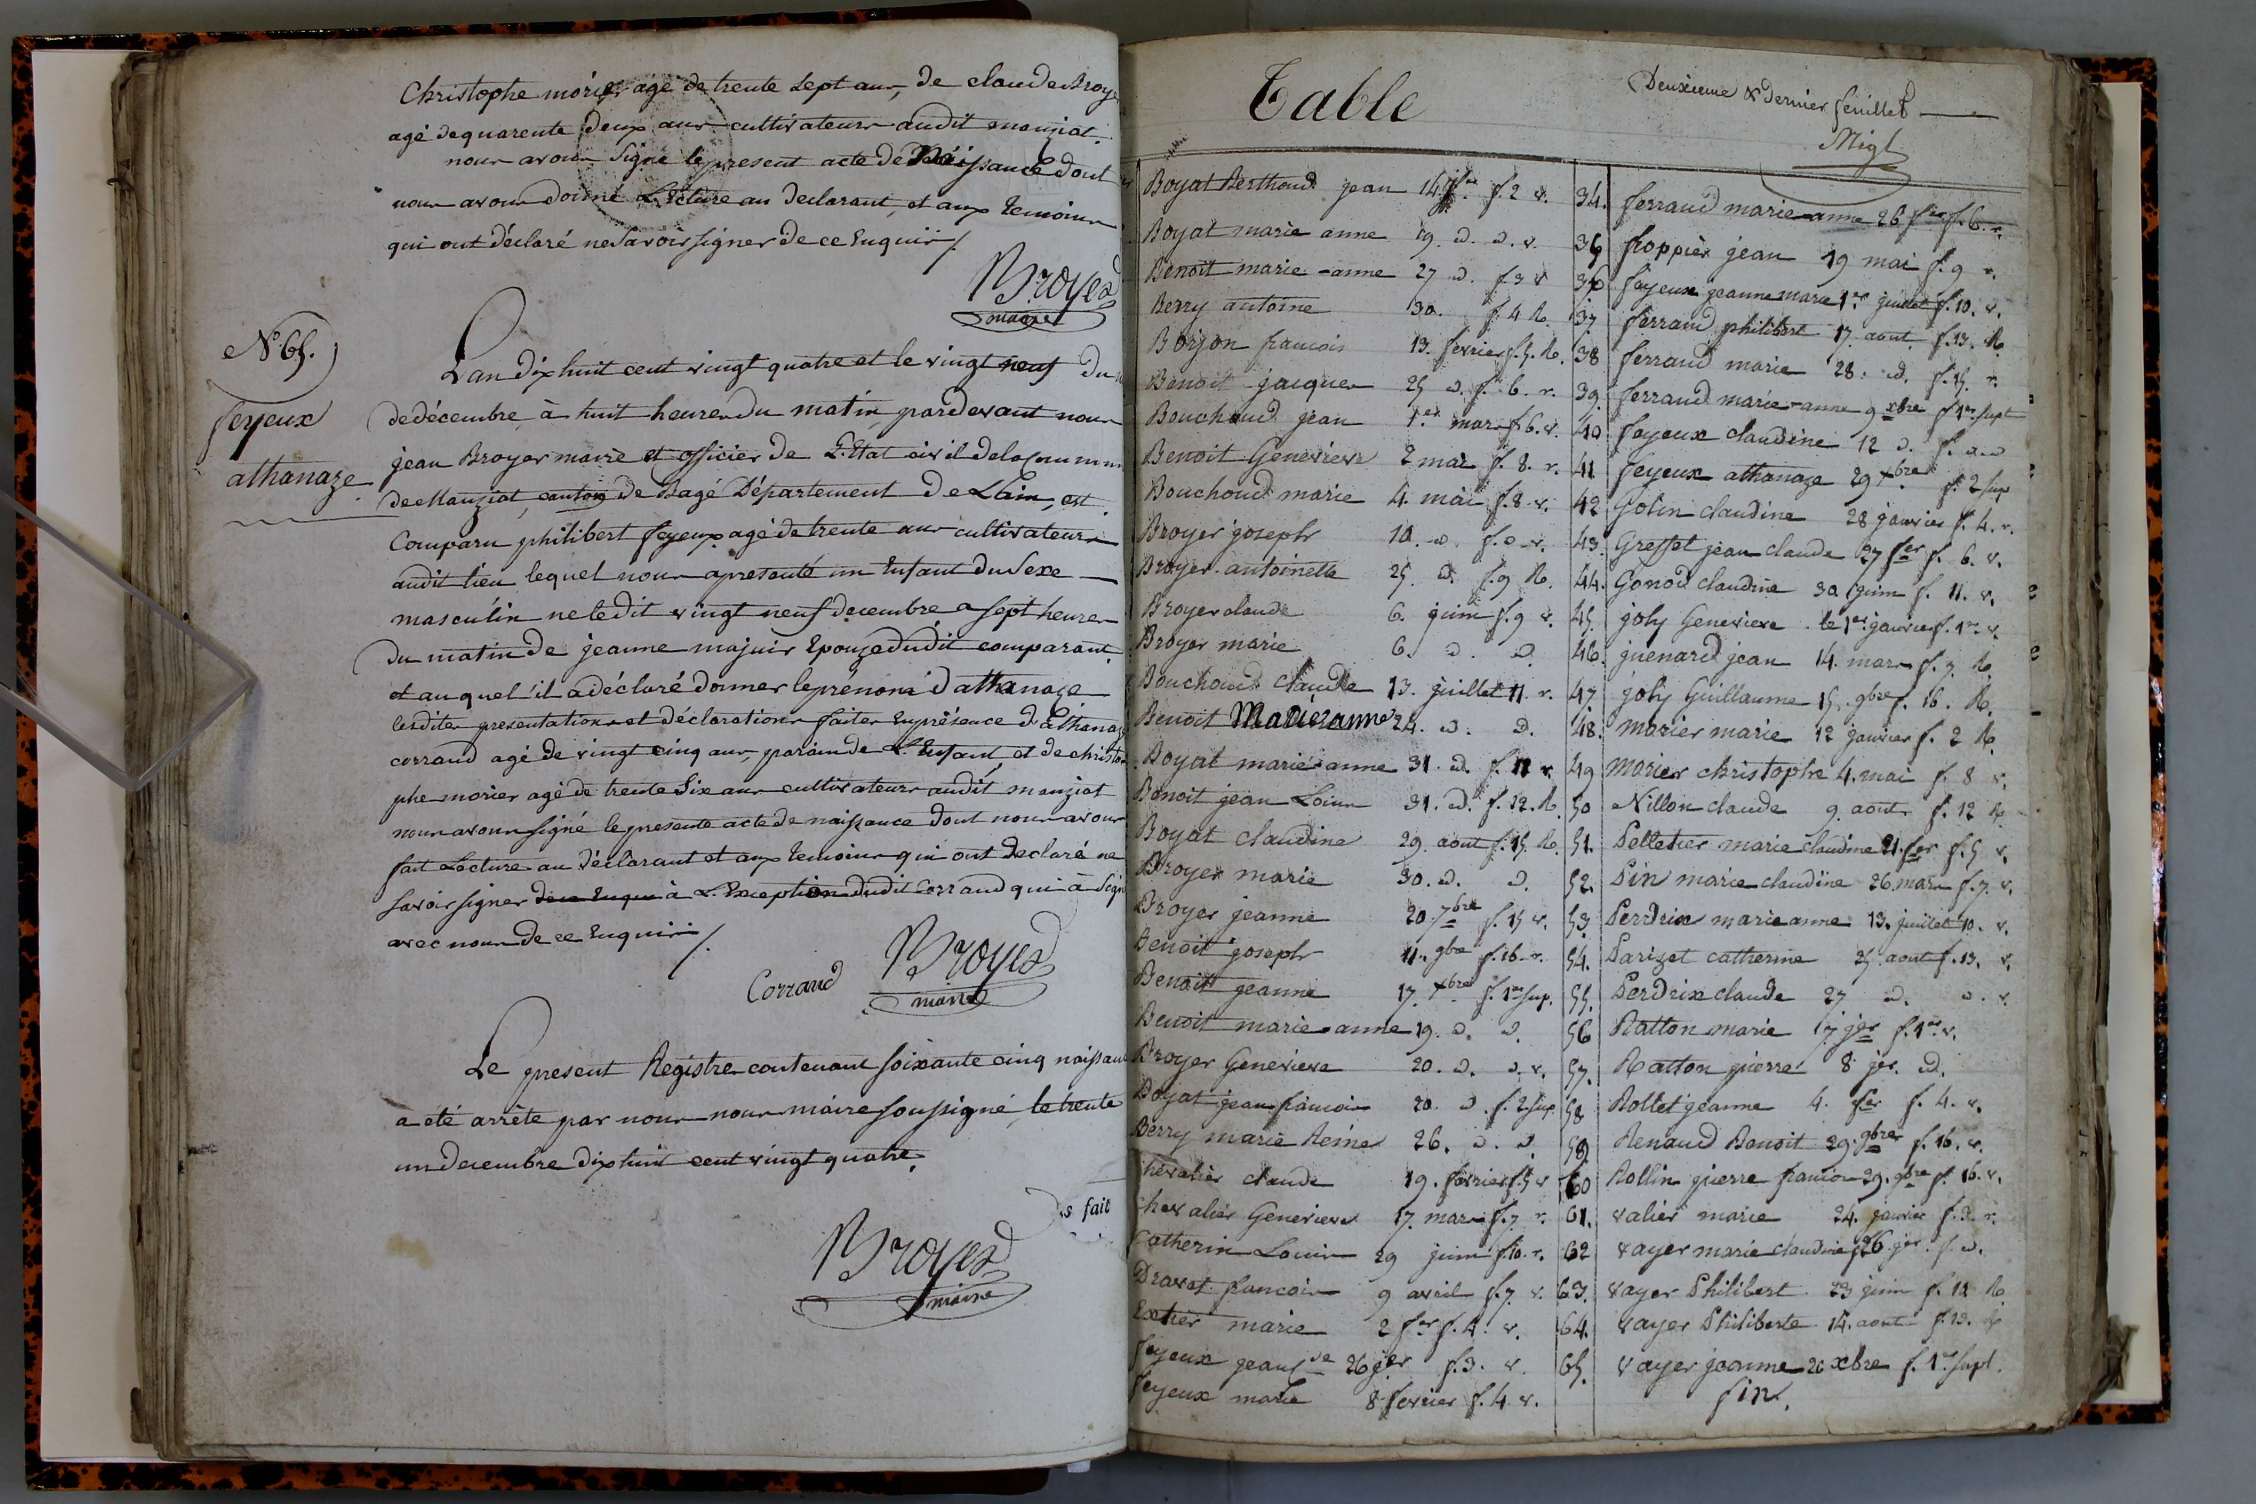 Christophe morier agé de trente Sept ans, de claude Broye
agé de quarente deux ans cultivateurs audit manziat
nous avons Signé le present acte de Naissance dont
nous avons donné Lecture au declarant, et aux temoins
qui ont déclaré ne Savoir signer de ce Enquis /
Broyer
maire
N° 65.
feyeux
athanaze
L'an dix huit cent vingt quatre et le vingt neuf du
de décembre, à huit heures du matin, pardevant nous
jean Broyer maire et officier de L'Etat civil de la Commune
de Manziat, canton de Bagé Département de Lain, est
Comparu philibert feyeux agé de trente ans cultivateur
audit lieu lequel nous a presenté un Enfant du Sexe
masculin né le dit vingt neuf decembre a sept heures
du matin de jeanne majuir Epouze dudit comparant
et au quel il a déclaré donner le prénom d'athanaze
lesdites presentation et déclaration faites En présence d'athanaz
corraud agé de vingt cinq ans, parain de L'Enfant, et de christo
phe morier agé de trente Six ans cultivateurs audit manziat
nous avons signé le presente acte de naissance dont nous avons
fait Lecture au déclarant et aux temoins qui ont declaré ne
Savoir signer de ce Enquis à L'Exception dudit Corraud qui à Signé
avec nous de ce Enquis /.
Corraud
Broyer
maire
Le present Registre contenant soixante cinq naissan
a été arrêté par nous nous maire soussigné, le trente
un decembre dix huit cent vingt quatre.
s fait
Broyer
maire
Table
Deuxieme & dernier feuillet
Migt
Boyat Berthoud jean 14 f. 2 v.
Boyat marie anne 19. d. d. v.
Benoit marie-anne 27 d. f 3 v
Berry antoine 30. f. 4 R.
Borjon francois 13. fevrier f. 5. R.
Benoit jacques 25 d. f. 6. r.
Bouchoud jean 1.er mars f 6. v.
Benoit Genevieve 2 mai f. 8. r.
Bouchoud marie 4. mai f. 8. v.
Broyer joseph 10. d. f. d. v.
Broyer antoinette 25. d. f. 9 R.
Broyer claude 6. juin f. 9 v.
Broyer marie 6. d. d.
Bouchoud claude 13. juillet 11. r.
Benoit Marie anne 24. d. d.
Boyat marie anne 31. d. f. 11 v.
Benoit jean Louis 31. d. f. 12. R.
Boyat claudine 29. aout f. 15. R.
Broyer marie 30. d. d.
Broyer jeanne 20. 7bre f. 15 v.
Benoit joseph 11. 9bre f. 16. r.
Benoit jeanne 17. xbre f. 1er sup.
Benoit marie anne 19. d. d.
Broyer Genevieve 20. d. d. v.
Boyat jean francois 20. d. f. 2 sup
Berry marie Reine 26. d. d.
Chevalier claude 19. fevrier f. 5 v
Chevalier Genevieve 17. mars f. 7 r.
Catherin Louis 29 juin f. 10. r.
Dravet francois 9 avril f. 7. v.
Extier marie 2 fer f. 4. v.
feyeux jean 26 jer f. 3. v.
feyeux marie 8 fevrier f. 4 v.
34. ferraud marie-anne 26 fer f. 6. r.
35 froppier jean 19 mai f. 9 v.
36 feyeux jeanne marie 1er juillet f. 10. v.
37. ferraud philibert 17. aout. f. 13. R.
38 ferraud marie 28. d. f. 15. r.
39. ferraud marie-anne 9 xbre f 1er supt
40 feyeux claudine 12 d. f. d. d
41 feyeux athanaze 29 xbre f. 2 sup
42 Golin claudine 28 janvier f. 4. r.
43. Greffet jean claude 27 fer f. 6. v.
44. Gonod claudine 30 juin f. 11. v.
45. joly Genevieve le 1er janvier f. 1er v.
46. guenard jean 14. mars f. 7. R.
47. joly Guillaume 15. 9bre f. 16. R.
48. morier marie 12 janvier f. 2 R.
49 morier christophe 4. mai f. 8 v.
50 Nillon claude 9. aout f. 12 R.
51. Pelletier marie claudine 21. fer f. 5 v.
52. Pin marie claudine 26. mars f. 7. v.
53. Perdrix marie anne 13. juillet 10. v.
54. Parizet catherine 25 aout f. 13. v.
55. Perdrix claude 27 d. d. v.
56 Ratton marie 7 jer f. 1er v.
57. Ratton pierre 8 jer. d.
58 Rollet jeanne 4. fer f. 4. v.
59. Renaud Benoit 29. 9bre f. 16. v.
60 Rollin pierre francois 29. 9bre f. 16. v.
61. valier marie 24. janvier f. 3. r.
62 vayer marie claudine 26. jer f. d.
63. vayer Philibert 23 juin f. 11 R.
64. vayer Philiberte 14. aout f. 13. R
65. vayer jeanne 20 xbre f. 1er supt.
fin.